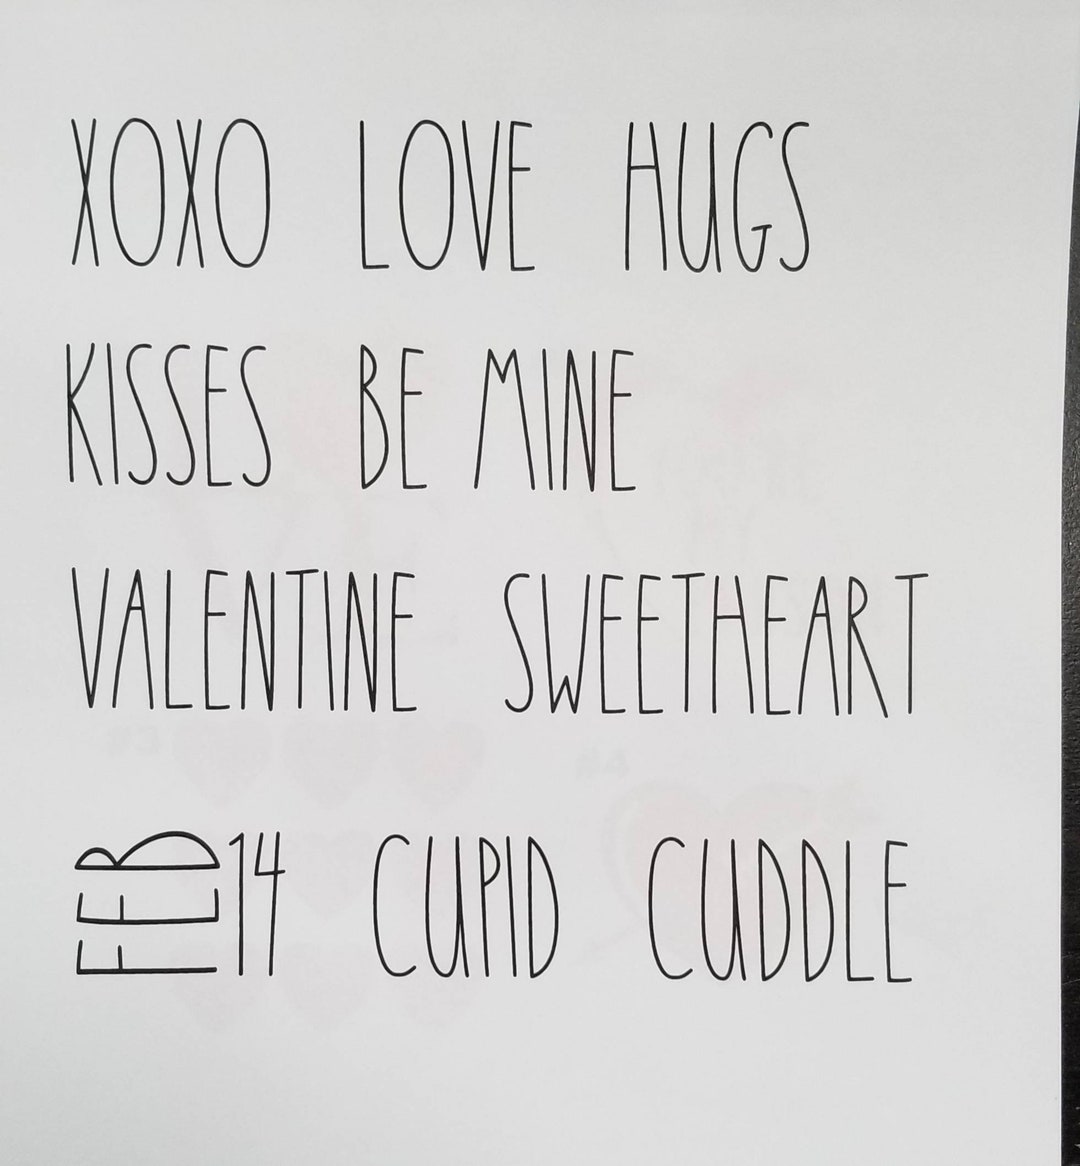 XOXO LOVE HUGS
KISSES BE MINE
VALENTINE SWEETHEART
FEB 14 CUPID CUDDLE
#3 #4